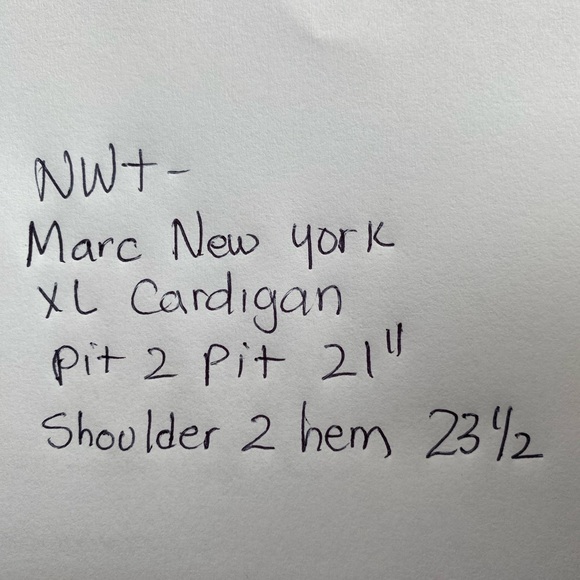 NWt-
Marc New york
XL Cardigan
pit 2 pit 21"
Shoulder 2 hem 23 1/2